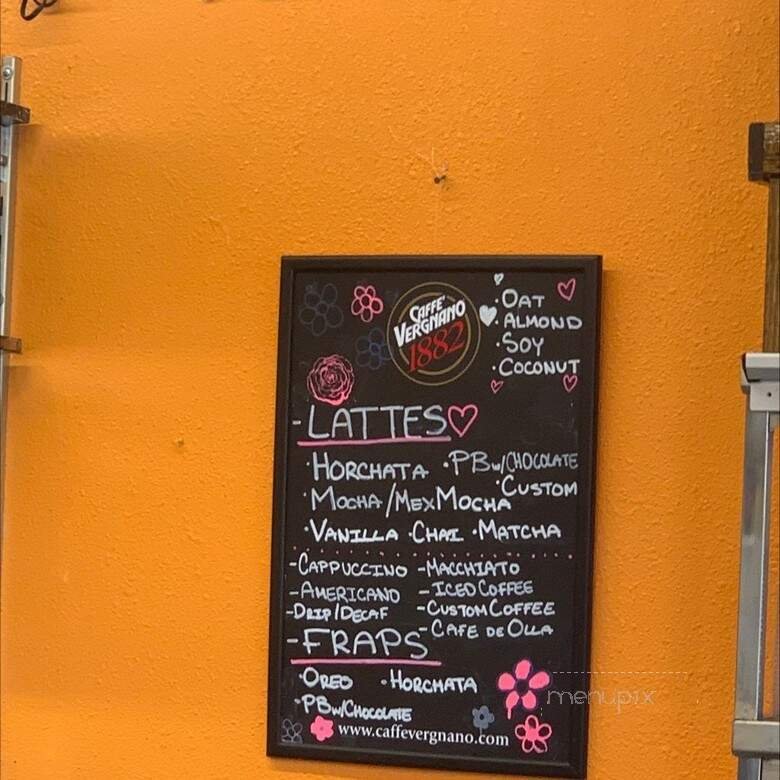 CAFFÈ
VERGNANO
1882
·OAT
·ALMOND
·SOY
·COCONUT
-LATTES
·HORCHATA ·PB w/CHOCOLATE
·CUSTOM
·MOCHA/MEX MOCHA
·VANILLA ·CHAI ·MATCHA
-CAPPUCCINO -MACCHIATO
-AMERICANO -ICED COFFEE
-DRIP/DECAF -CUSTOM COFFEE
-CAFE DE OLLA
-FRAPS
·OREO ·HORCHATA
·PB w/CHOCOLATE
www.caffevergnano.com
menupix